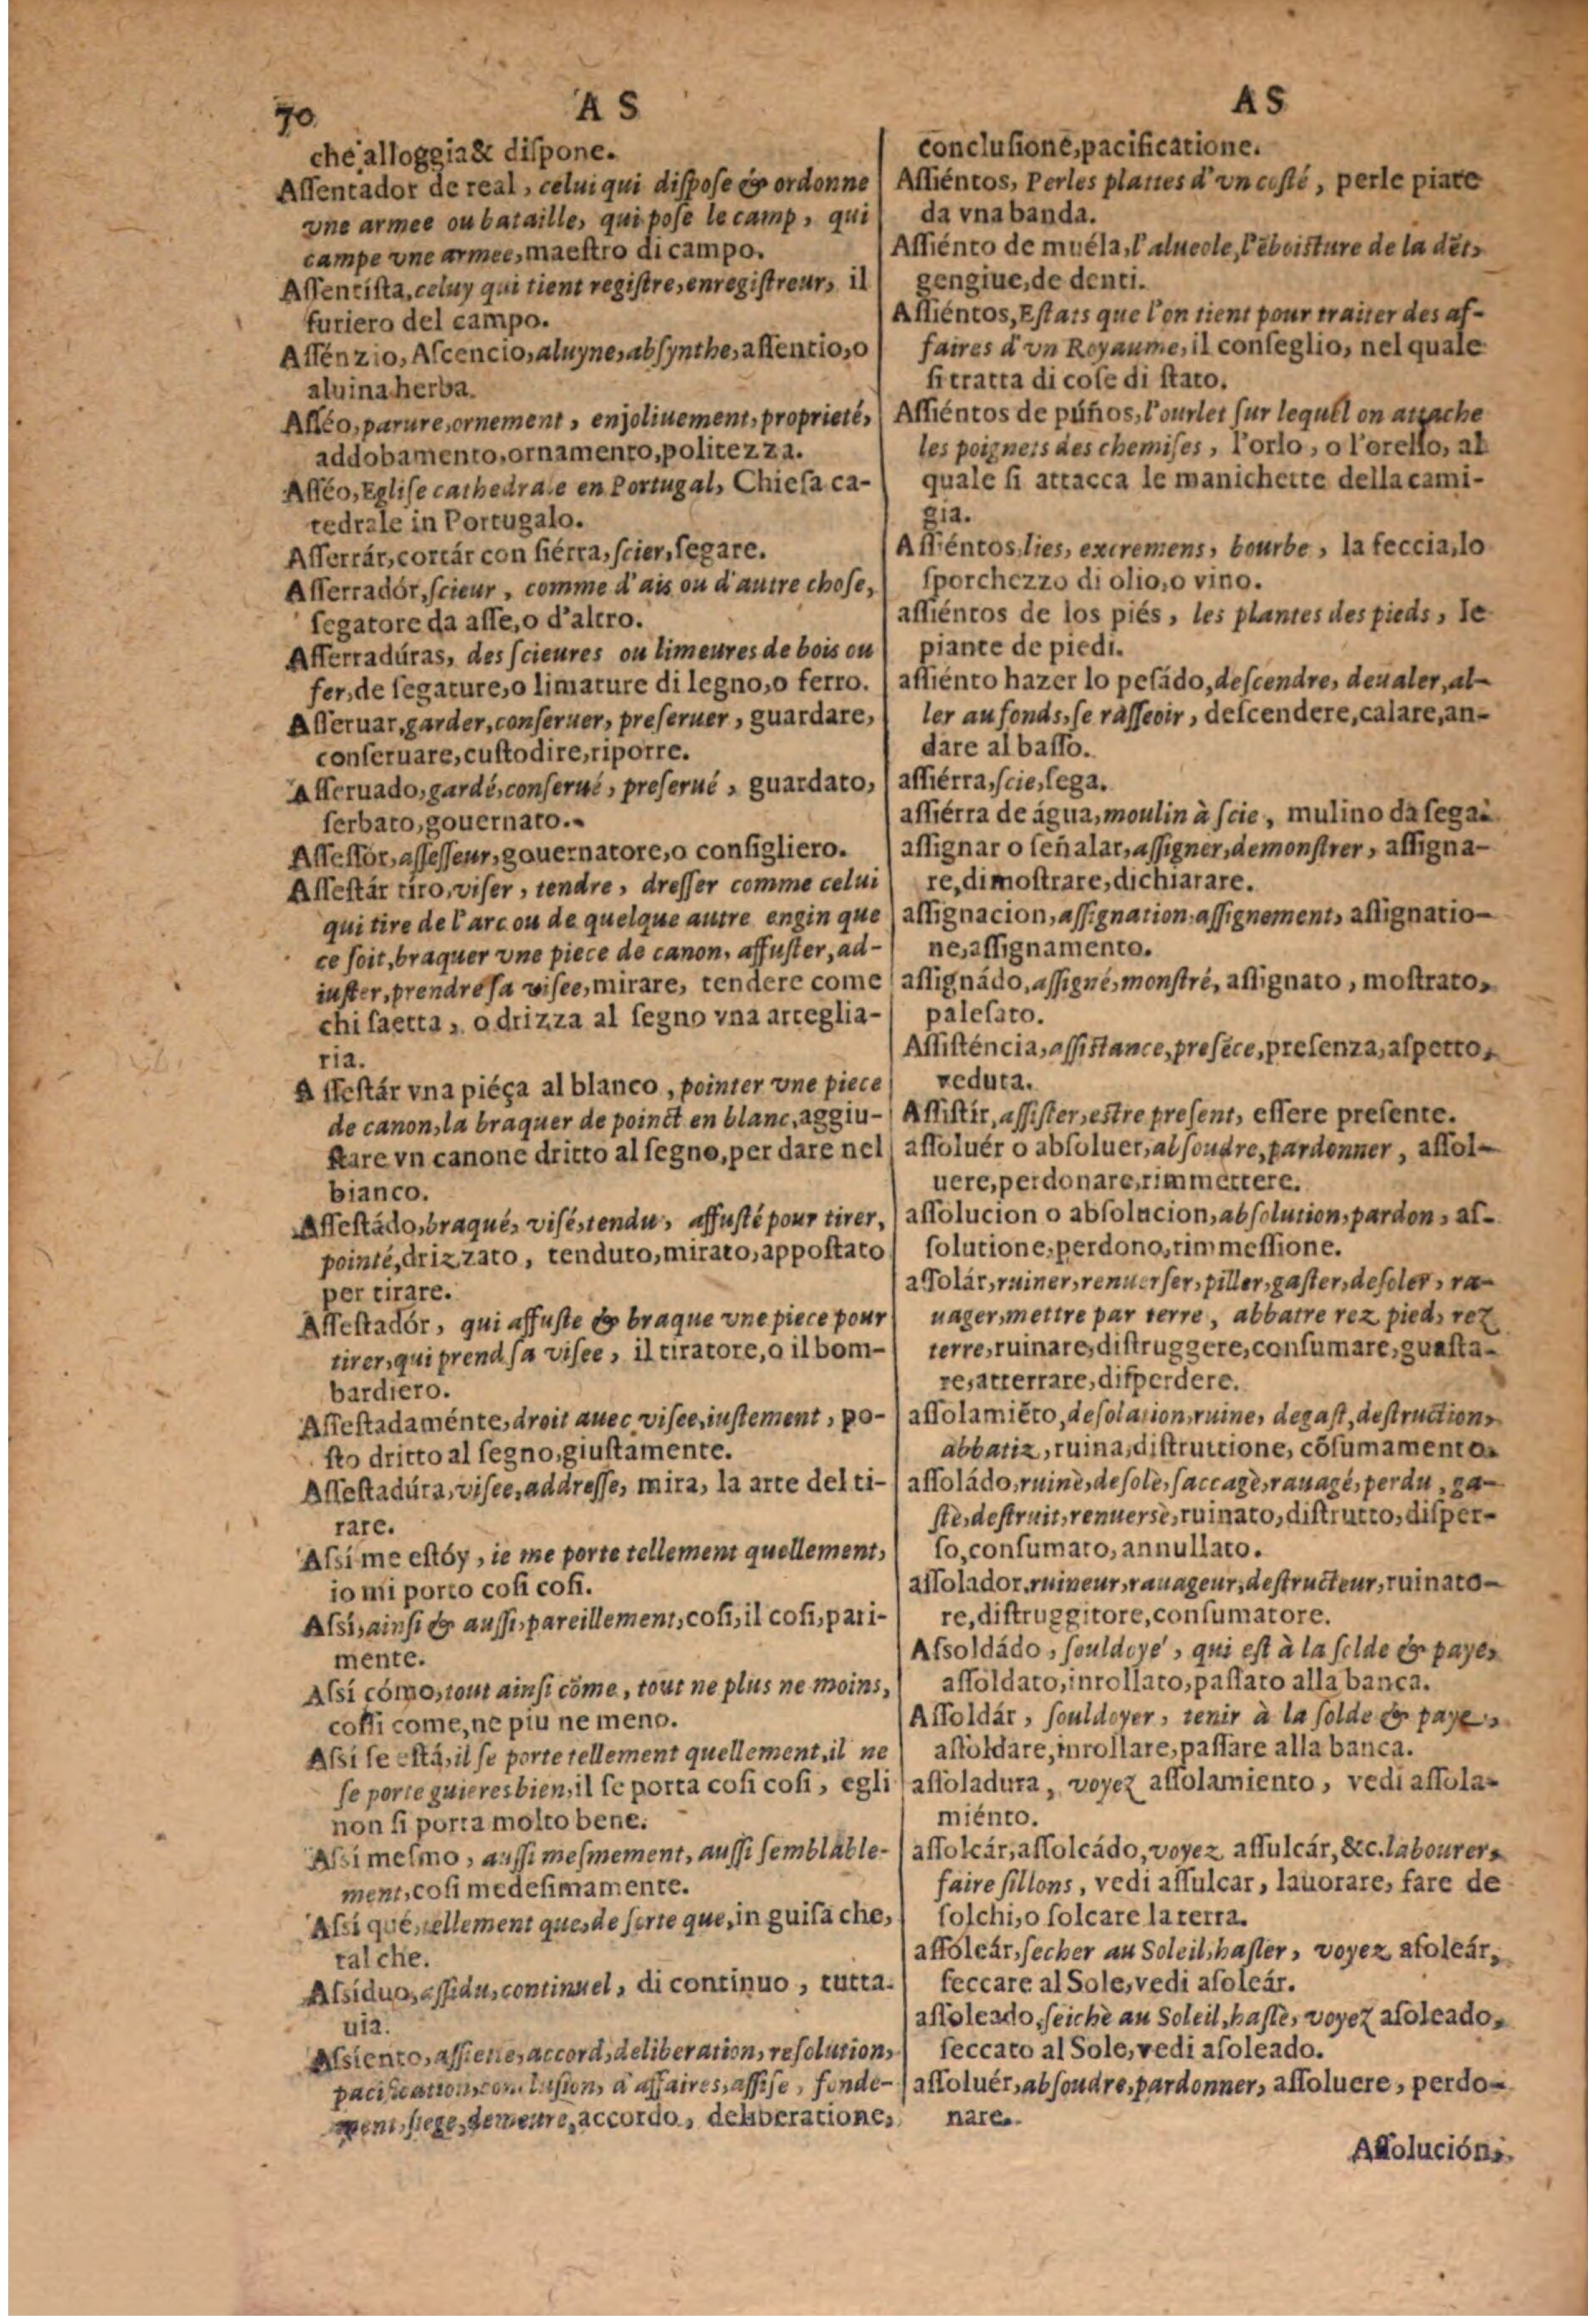 70
A S
che alloggia & dispone.
Assentador de real, celui qui dispose & ordonne
vne armee ou bataille, qui pose le camp, qui
campe vne armee, maestro di campo.
Assentísta, celuy qui tient registre, enregistreur, il
furiero del campo.
Assénzio, Ascencio, aluyne, absynthe, assentio, o
aluina herba.
Asséo, parure, ornement, enjoliuement, proprieté,
addobamento, ornamento, politezza.
Asséo, Eglise cathedrale en Portugal, Chiesa ca-
tedrale in Portugalo.
Asserrár, cortár con siérra, scier, segare.
Asserradór, scieur, comme d'ais ou d'autre chose,
segatore da asse, o d'altro.
Asserradúras, des scieures ou limeures de bois ou
fer, de segature, o limature di legno, o ferro.
Asseruar, garder, conseruer, preseruer, guardare,
conseruare, custodire, riporre.
Asseruado, gardé, conserué, preserué, guardato,
serbato, gouernato.
Assessór, assesseur, gouernatore, o consigliero.
Assestár tiro, viser, tendre, dresser comme celui
qui tire de l'arc ou de quelque autre engin que
ce soit, braquer vne piece de canon, affuster, ad-
iuster, prendre sa visee, mirare, tendere come
chi saetta, o drizza al segno vna arteglia-
ria.
Assestár vna piéça al blanco, pointer vne piece
de canon, la braquer de poinct en blanc, aggiu-
stare vn canone dritto al segno, per dare nel
bianco.
Assestádo, braqué, visé, tendu, affusté pour tirer,
pointé, drizzato, tenduto, mirato, appostato
per tirare.
Assestadór, qui affuste & braque vne piece pour
tirer, qui prend sa visee, il tiratore, o il bom-
bardiero.
Assestadaménte, droit auec visee, iustement, po-
sto dritto al segno, giustamente.
Assestadúra, visee, addresse, mira, la arte del ti-
rare.
Assí me estóy, ie me porte tellement quellement,
io mi porto cosi cosi.
Assí, ainsi & aussi, pareillement, cosi, il cosi, pari-
mente.
Assí cómo, tout ainsi cõme, tout ne plus ne moins,
cossi come, ne piu ne meno.
Assí se está, il se porte tellement quellement, il ne
se porte guieres bien, il se porta cosi cosi, egli
non si porta molto bene.
Assí mesmo, aussi mesmement, aussi semblable-
ment, cosi medesimamente.
Assí qué, tellement que, de sorte que, in guisa che,
tal che.
Assíduo, assidu, continuel, di continuo, tutta-
uia.
Assiento, assiette, accord, deliberation, resolution,
pacification, conclusion, d'affaires, assise, fonde-
ment, siege, demeure, accordo, deliberatione,
A S
conclusione, pacificatione.
Assiéntos, Perles plattes d'vn costé, perle piate
da vna banda.
Assiénto de muéla, l'alueole, l'ẽboisture de la dẽt,
gengiue, de denti.
Assiéntos, Estats que l'on tient pour traiter des af-
faires d'vn Royaume, il conseglio, nel quale
si tratta di cose di stato.
Assiéntos de púños, l'ourlet sur lequel on attache
les poignets des chemises, l'orlo, o l'orello, al
quale si attacca le manichette della cami-
gia.
Assiéntos, lies, excremens, bourbe, la feccia, lo
sporchezzo di olio, o vino.
assiéntos de los piés, les plantes des pieds, le
piante de piedi.
assiénto hazer lo pesádo, descendre, deualer, al-
ler au fonds, se rasseoir, descendere, calare, an-
dare al basso.
assiérra, scie, sega.
assiérra de água, moulin à scie, mulino da sega.
assignar o señalar, assigner, demonstrer, assigna-
re, dimostrare, dichiarare.
assignacion, assignation, assignement, assignatio-
ne, assignamento.
assignádo, assigné, monstré, assignato, mostrato,
palesato.
Assisténcia, assistance, presẽce, presenza, aspetto,
veduta.
Assistír, assister, estre present, essere presente.
assoluér o absoluer, absoudre, pardonner, assol-
uere, perdonare, rimmettere.
assolucion o absolucion, absolution, pardon, as-
solutione, perdono, rimmessione.
assolár, ruiner, renuerser, piller, gaster, desoler, ra-
uager, mettre par terre, abbatre rez pied, rez
terre, ruinare, distruggere, consumare, guasta-
re, atterrare, disperdere.
assolamiẽto, desolation, ruine, degast, destruction,
abbatiz, ruina, distruttione, cõsumamento.
assoládo, ruinè, desolè, saccagè, rauagé, perdu, ga-
stè, destruit, renuersè, ruinato, distrutto, disper-
so, consumato, annullato.
assolador, ruineur, rauageur, destructeur, ruinato-
re, distruggitore, consumatore.
Assoldádo, souldoyé, qui est à la solde & paye,
assoldato, inrollato, passato alla banca.
Assoldár, souldoyer, tenir à la solde & paye,
assoldare, inrollare, passare alla banca.
assoladura, voyez assolamiento, vedi assola-
miénto.
assolcár, assolcádo, voyez assulcár, &c. labourer,
faire sillons, vedi assulcar, lauorare, fare de
solchi, o solcare la terra.
assóleár, secher au Soleil, hasler, voyez asoleár,
seccare al Sole, vedi asoleár.
assoleado, seichè au Soleil, haslè, voyez asoleado,
seccato al Sole, vedi asoleado.
assoluér, absoudre, pardonner, assoluere, perdo-
nare.
Assolución,